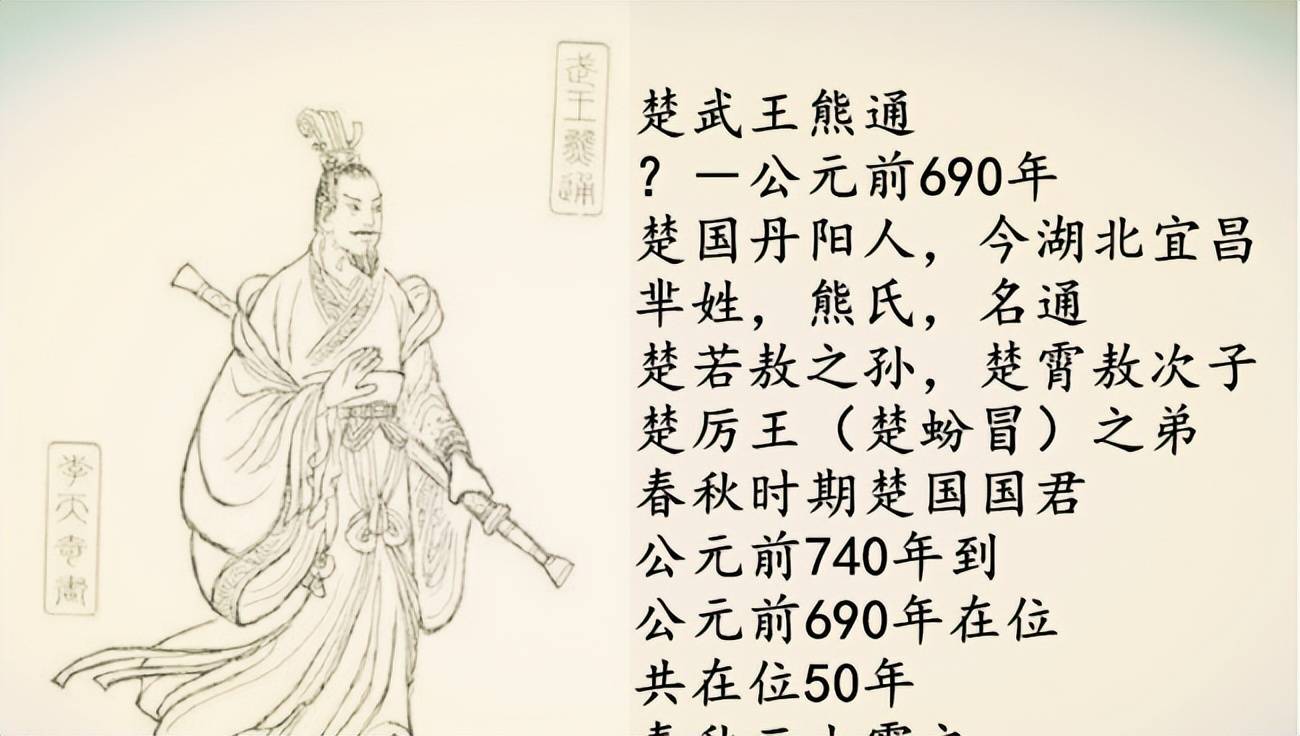 楚武王熊通
楚武王熊通
？－公元前690年
楚国丹阳人，今湖北宜昌
芈姓，熊氏，名通
楚若敖之孙，楚霄敖次子
楚厉王（楚蚡冒）之弟
春秋时期楚国国君
公元前740年到
公元前690年在位
共在位50年